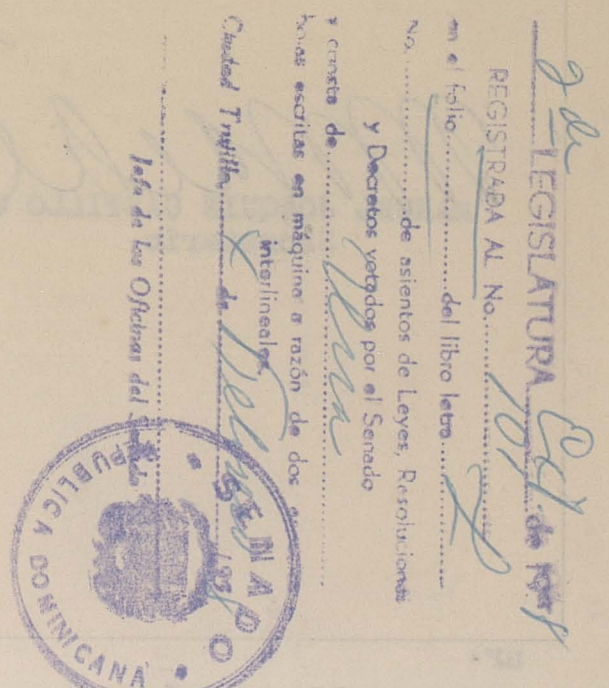 2da LEGISLATURA Ord. de 1958
REGISTRADA AL No. 101
en el folio del libro letra
No. de asientos de Leyes, Resoluciones
y Decretos votados por el Senado
y consta de Una
hojas escritas en máquina a razón de dos
interlineales
Ciudad Trujillo de 1958
Jefe de las Oficinas del Senado
SENADO
REPUBLICA DOMINICANA